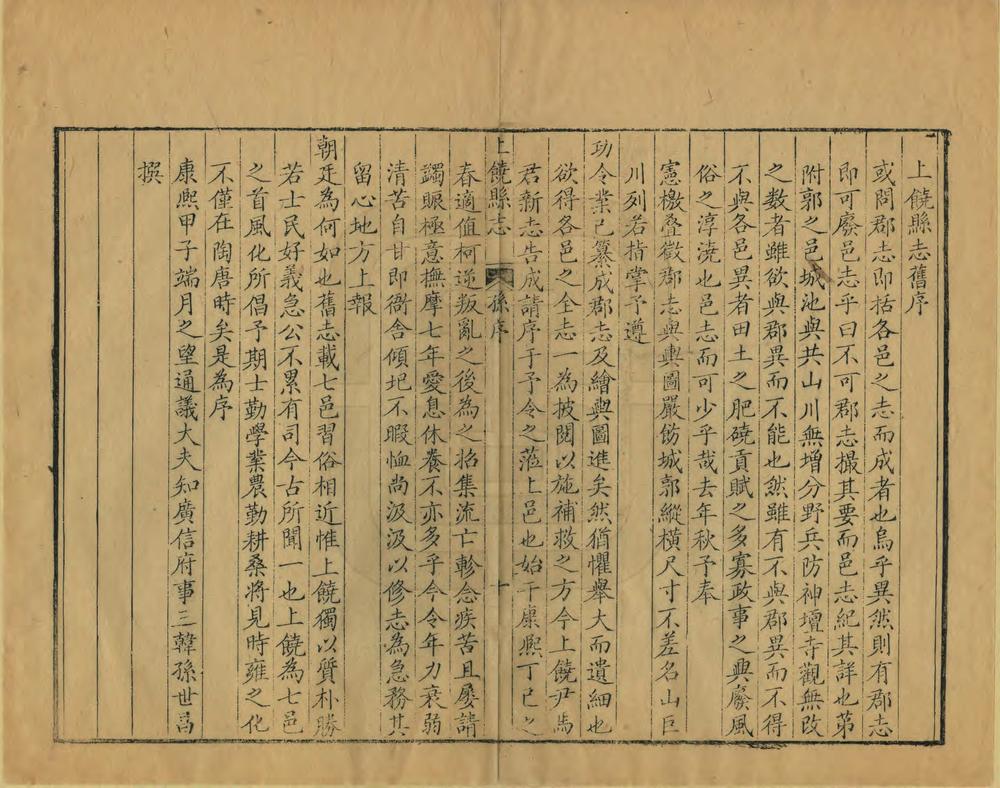 上饒縣志舊序
或問郡志即括各邑之志而成者也烏乎異然則有郡志
即可廢邑志乎曰不可郡志撮其要而邑志紀其詳也第
附郭之邑城池與共山川無增分野兵防神壇寺觀無改
之數者雖欲與郡異而不能也然雖有不與郡異而不得
不與各邑異者田土之肥磽貢賦之多寡政事之興廢風
俗之淳澆也邑志而可少乎哉去年秋予奉
憲檄叠徵郡志與輿圖嚴飭城郭縱橫尺寸不差名山巨
川列若指掌予遵
功令業已纂成郡志及繪輿圖進矣然猶懼舉大而遺細也
欲得各邑之全志一為披閱以施補救之方今上饒尹馬
君新志告成請序于予令之蒞上邑也始于康熙丁巳之
上饒縣志 孫序 十
春適值柯逆叛亂之後為之招集流亡軫念疾苦且屢請
蠲賑極意撫摩七年愛息休養不亦多乎今令年力衰弱
清苦自甘即衙舍傾圯不暇恤尚汲汲以修志為急務其
留心地方上報
朝廷為何如也舊志載七邑習俗相近惟上饒獨以質朴勝
若士民好義急公不累有司今古所聞一也上饒為七邑
之首風化所倡予期士勤學業農勤耕桑將見時雍之化
不僅在陶唐時矣是為序
康熙甲子端月之望通議大夫知廣信府事三韓孫世昌
撰